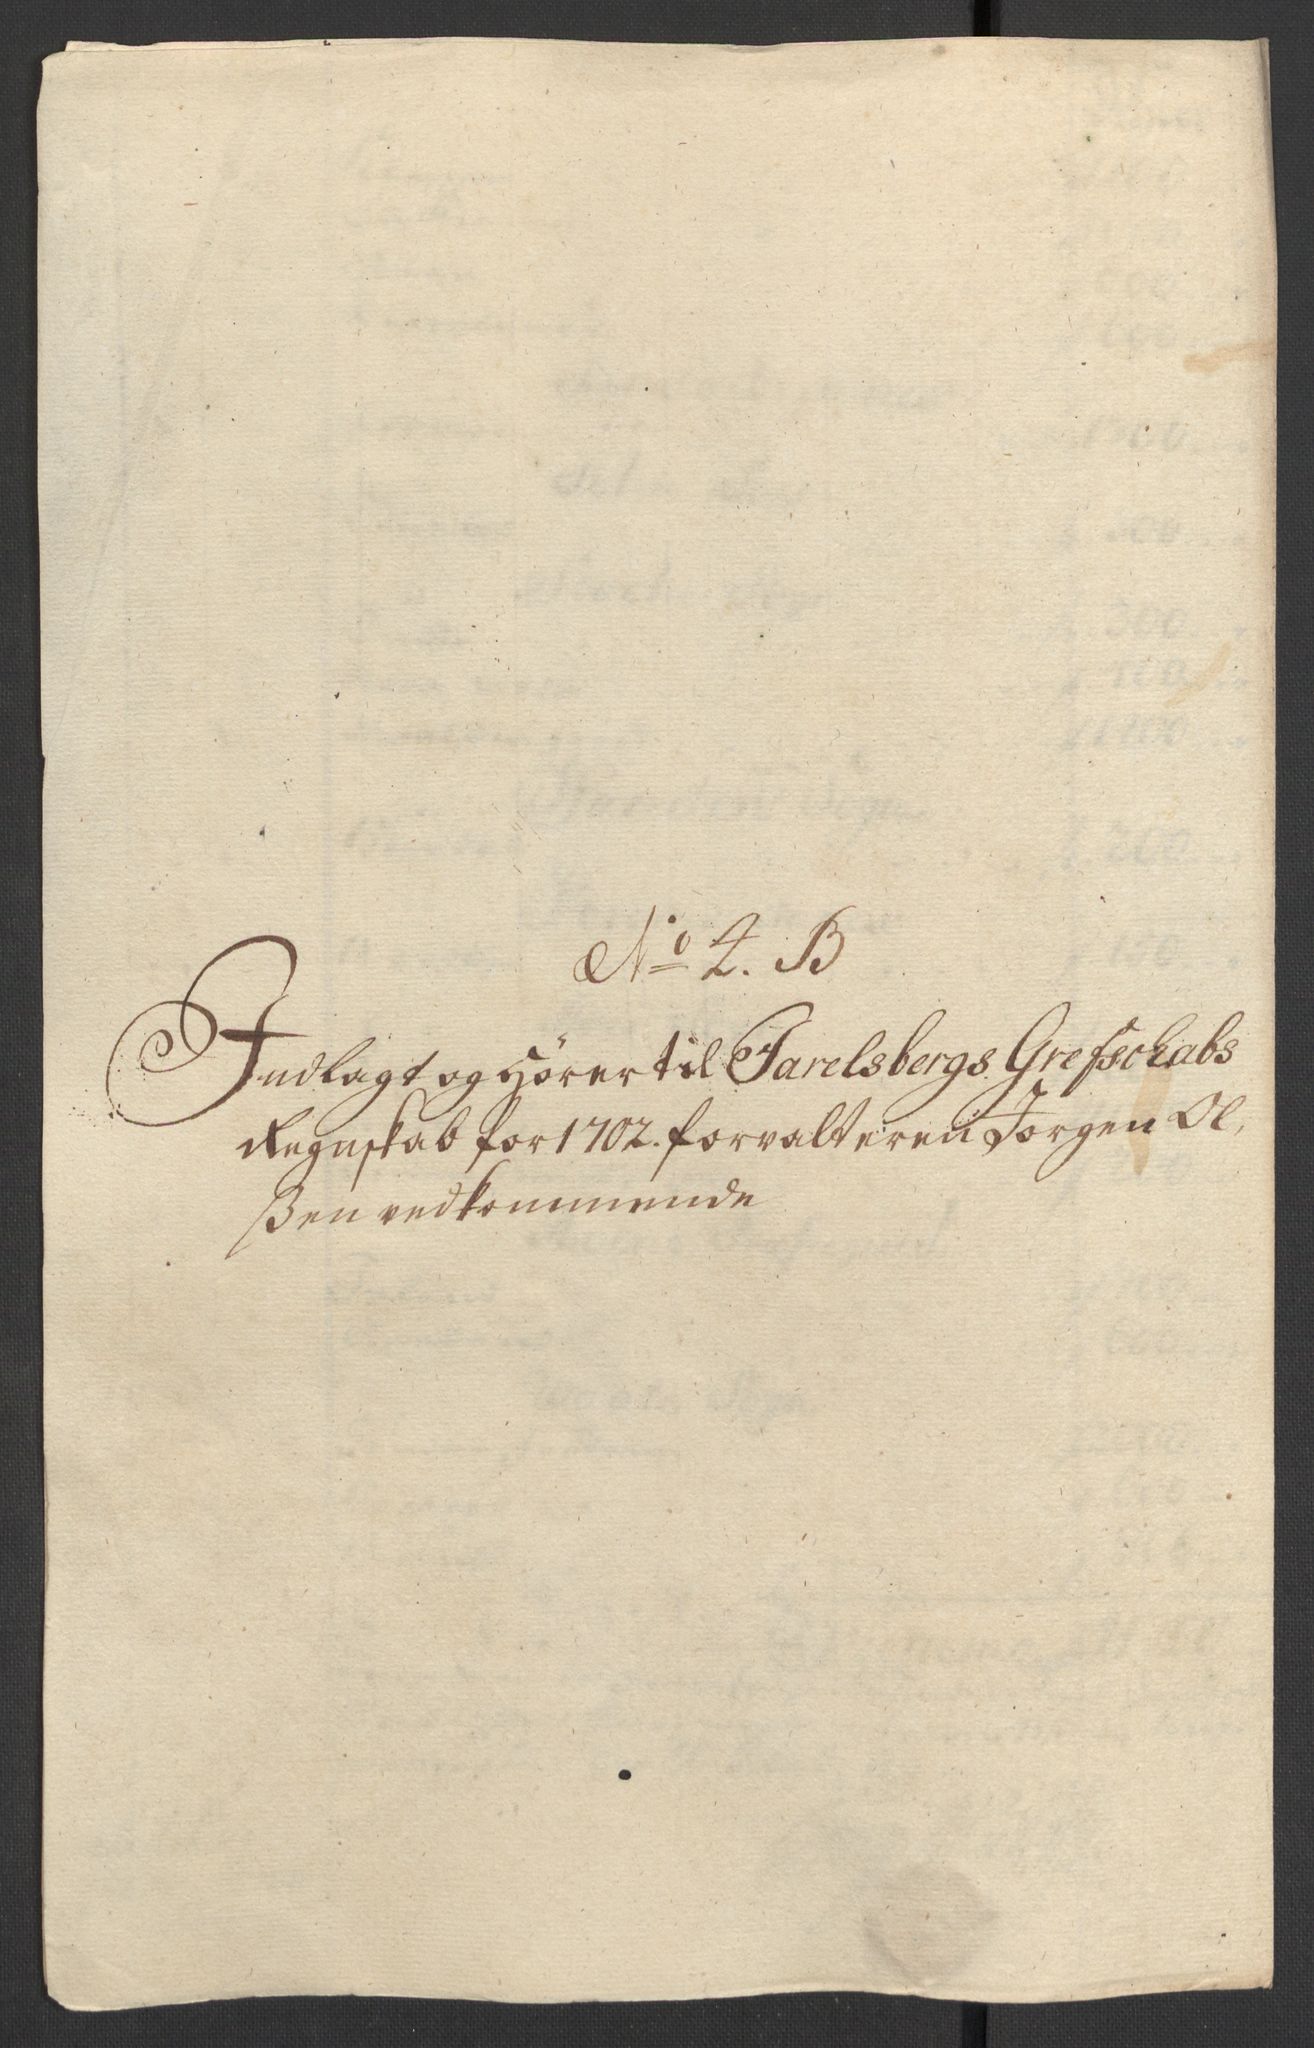 No 2. B
Indlagt og Hörer til Jarelsbergs Grefschabs
Regnskab for 1702. forvalteren Jörgen Ol,
ßen vedkommende